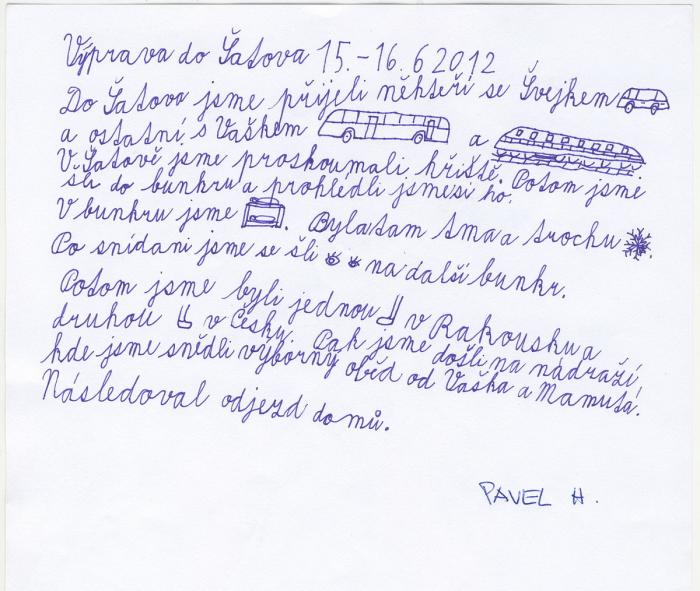 Výprava do Šatova 15.-16.6 2012
Do Šatova jsme přijeli někteří se Švejkem
a ostatní s Vaškem a
V Šatově jsme proskoumali hřiště. Potom jsme
šli do bunkru a prohlédli jsmesi ho.
V bunkru jsme . Bylatam tma a trochu .
Po snídani jsme se šli na další bunkr.
Potom jsme byli jednou v Rakousku a
druhou v Česku. Pak jsme došli na nádraží,
kde jsme snědli výborný oběd od Vaška a Mamuta.
Následoval odjezd domů.
PAVEL H.